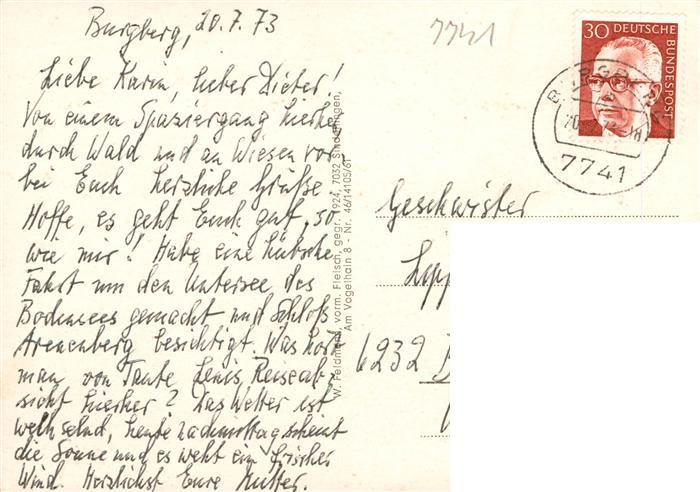 Burgberg, 20.7.73
Liebe Karin, lieber Dieter!
Von einem Spaziergang hierher
durch Wald und an Wiesen vor-
bei Euch herzliche Grüße.
Hoffe, es geht Euch gut, so
wie mir! Habe eine hübsche
Fahrt um den Untersee des
Bodensees gemacht und Schloß
Arenenberg besichtigt. Was hört
man von Tante Lenis Reiseab-
sicht hierher? Das Wetter ist
wechselnd, heute nachmittag scheint
die Sonne und es weht ein frischer
Wind. Herzlichst Eure Mutter.
W. Feldmann, vorm. Fleisch, gegr. 1924, 7032 Sindelfingen,
Am Vogelhain 8 - Nr. 46/14105/61
7741
30 DEUTSCHE
BUNDESPOST
7741
Geschwister
6232